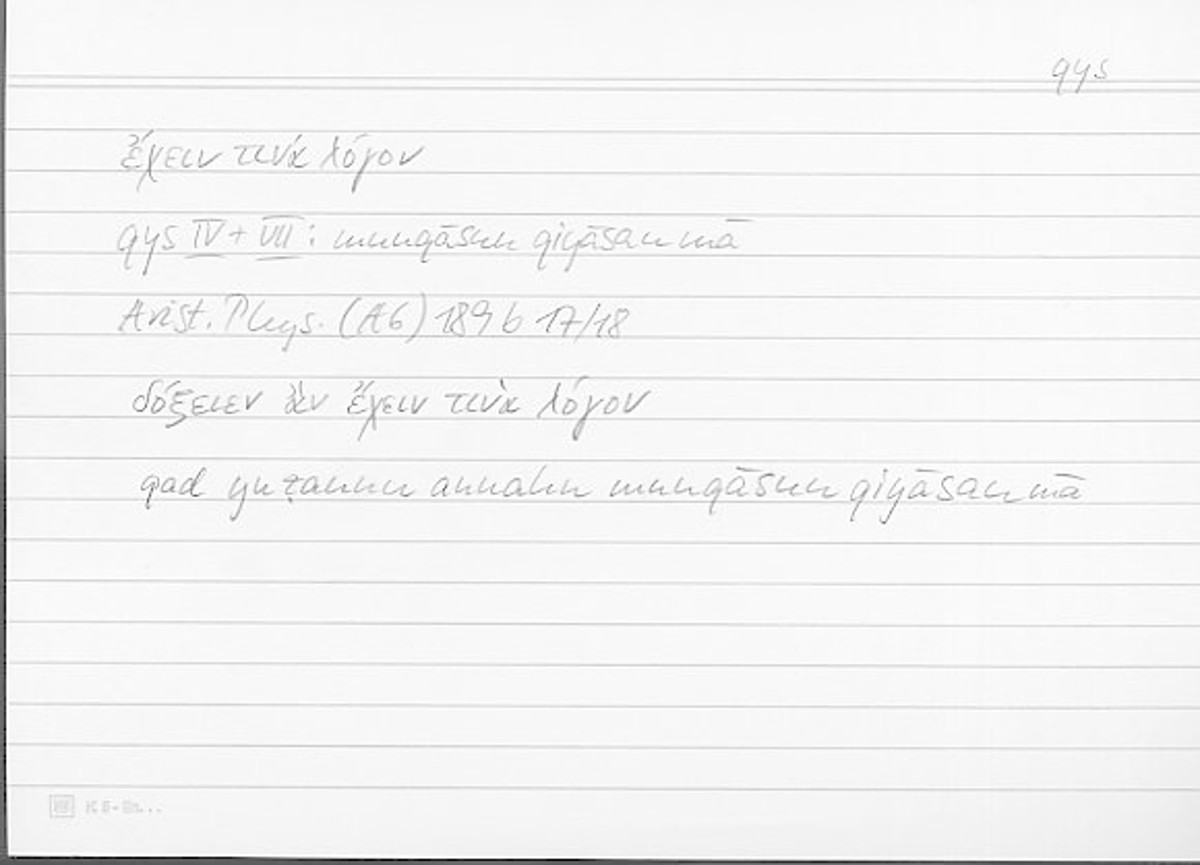 qys
ἔχειν τινὰ λόγον
qys IV + VII: munqāsun qiyāsan mā
Arist. Phys. (A6) 189 b 17/18
δόξειεν ἂν ἔχειν τινὰ λόγον
qad yuẓannu annahu munqāsun qiyāsan mā